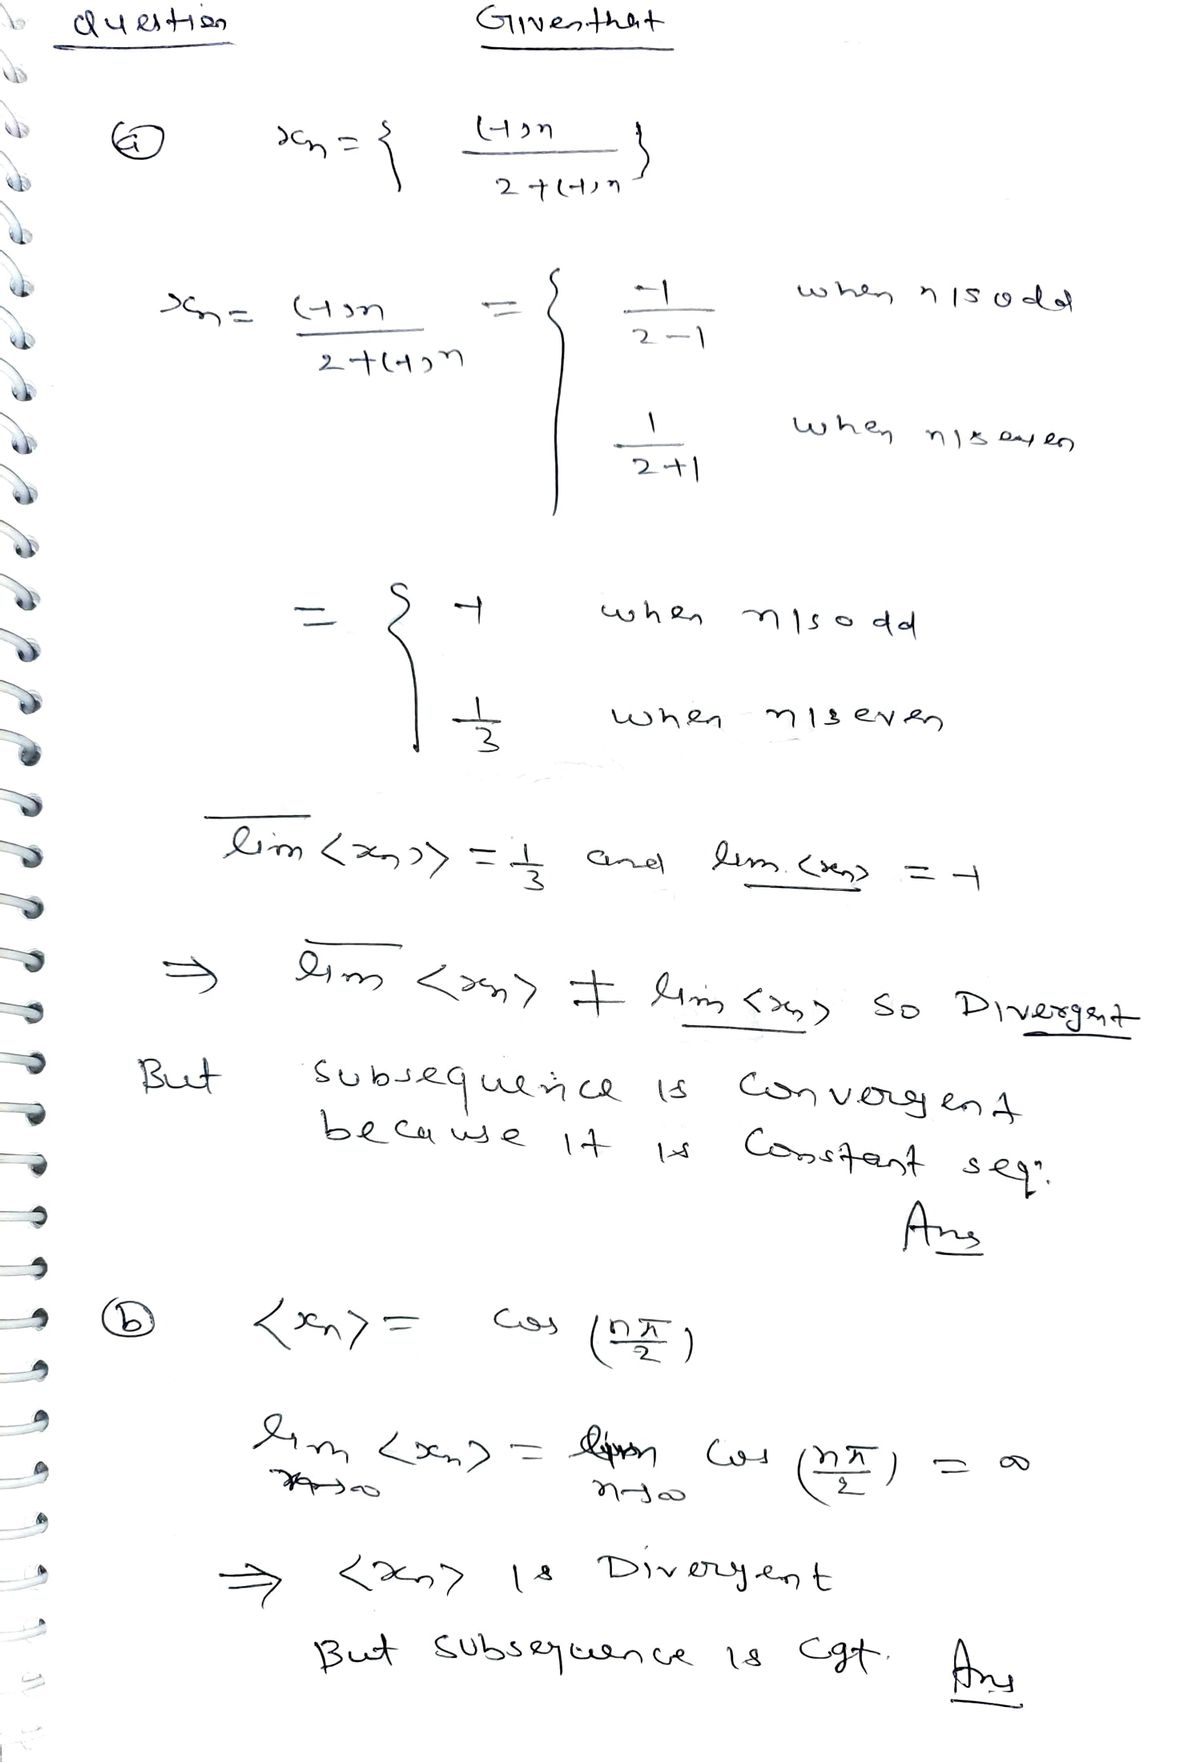 Question Given that
(a) xn = { (-1)n / 2+(-1)n }
xn = (-1)n / 2+(-1)n = { -1 / 2-1 when n is odd
1 / 2+1 when n is even
= { -1 when n is odd
1/3 when n is even
lim <xn>> = 1/3 and lim <xn> = -1
⇒ lim <xn> ≠ lim <xn> so Divergent
But subsequence is convergent
because it is Constant seqn.
Ans
(b) <xn> = cos (nπ/2)
lim <xn> = lim cos (nπ/2) = ∞
n→∞ n→∞
⇒ <xn> is Divergent
But subsequence is cgt. Ans